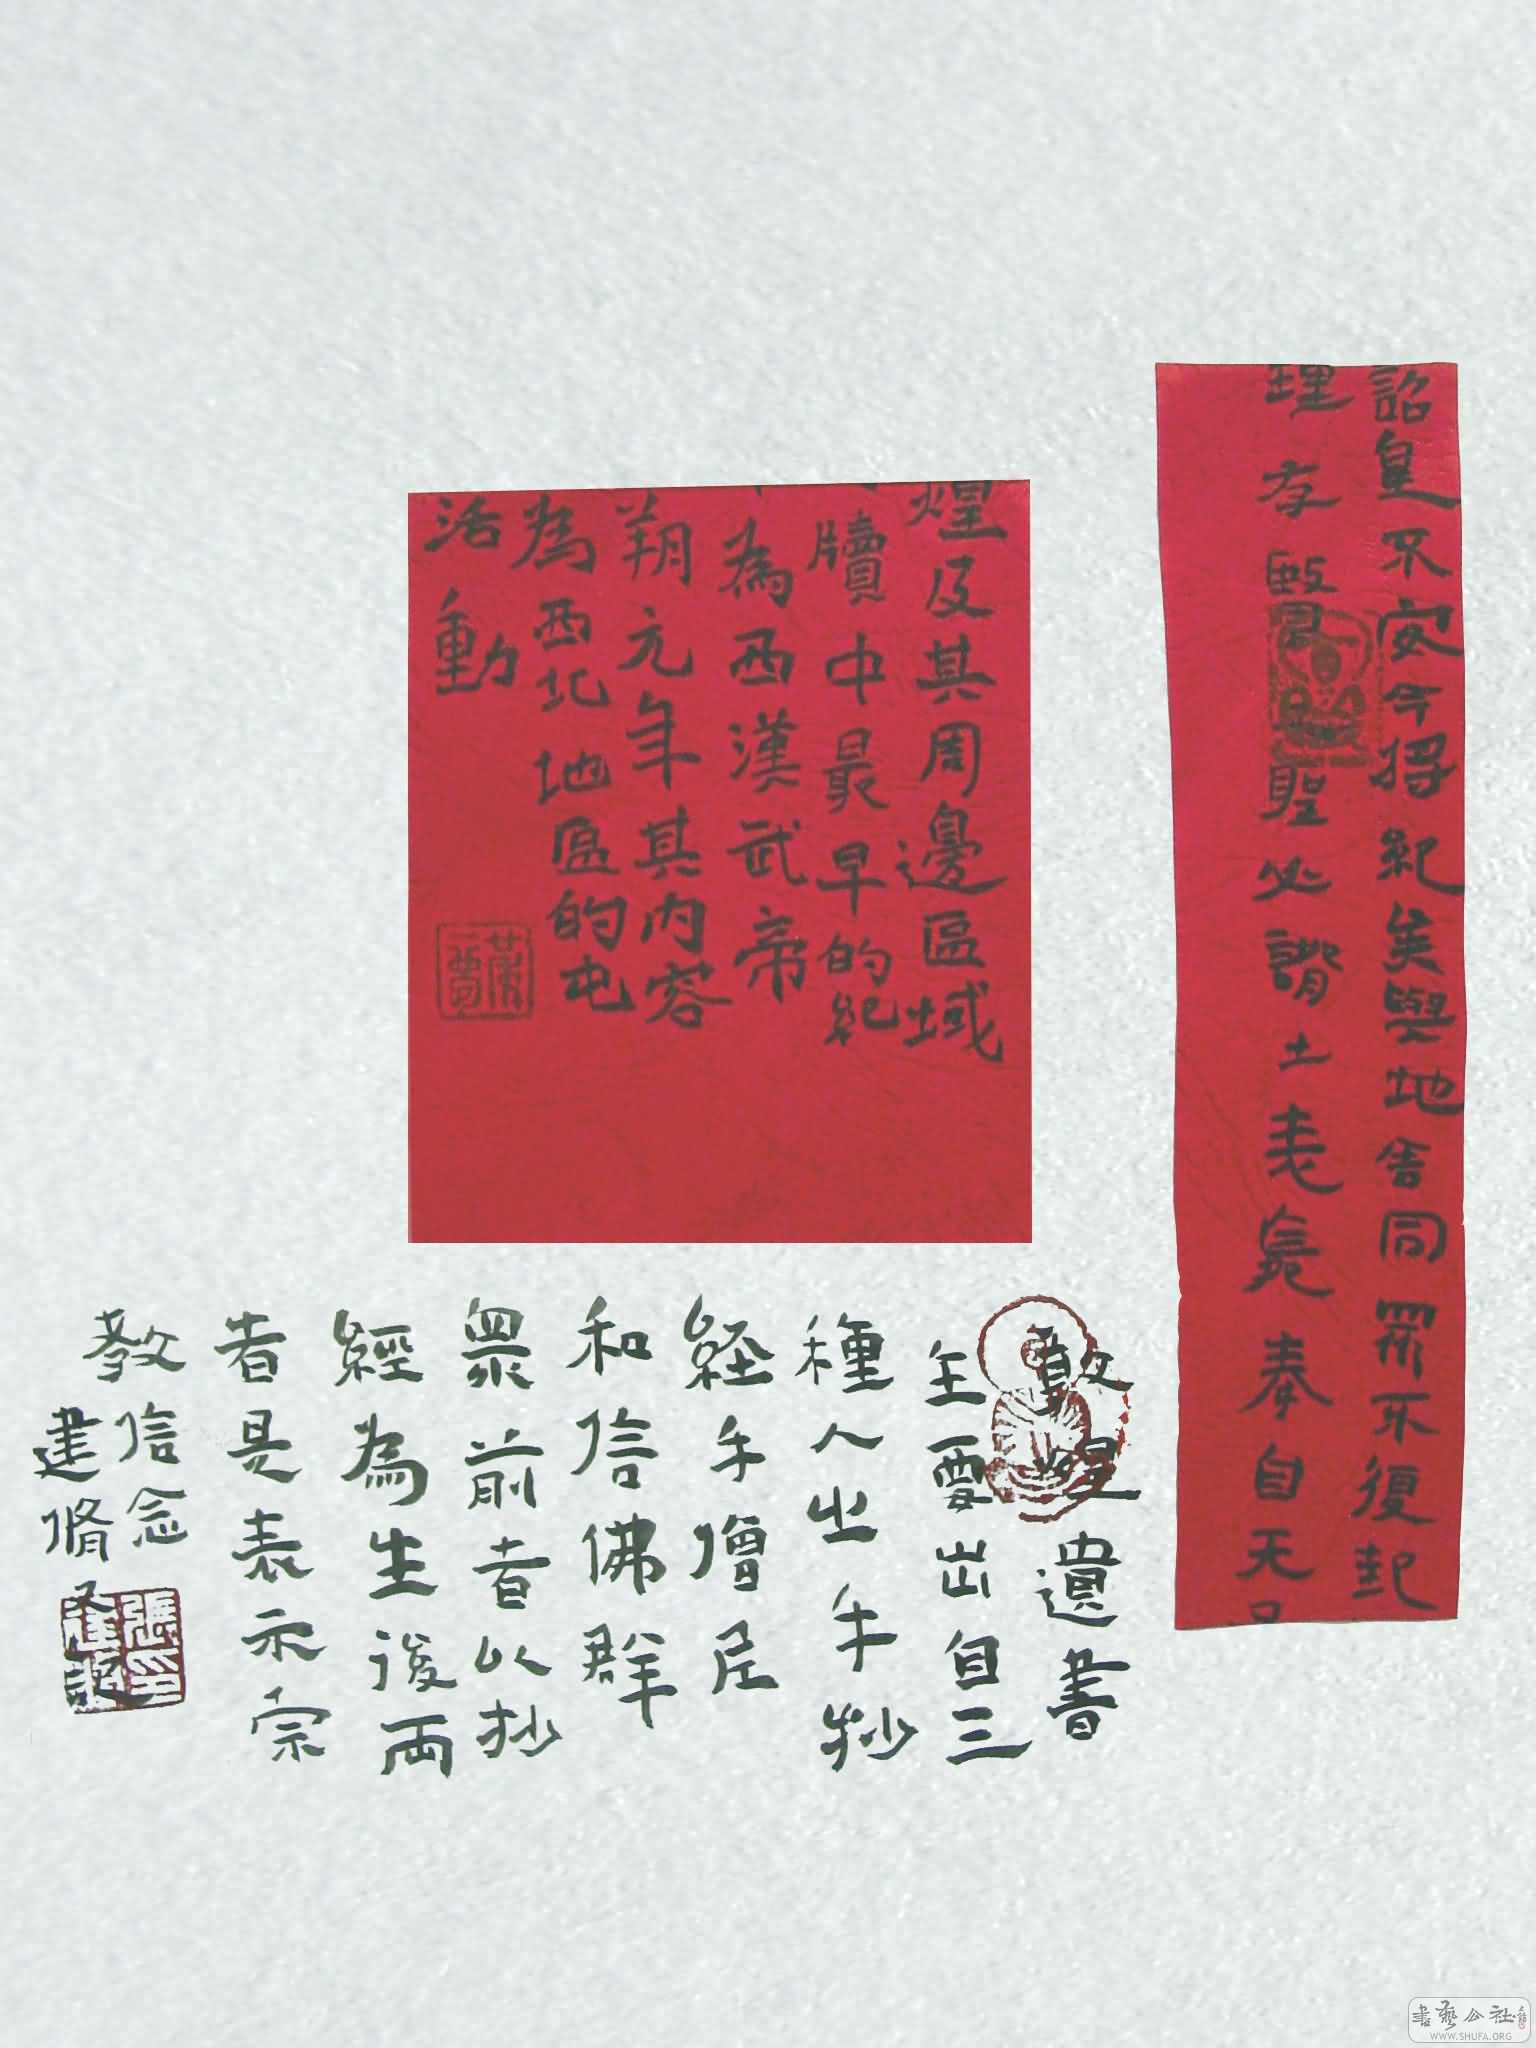 詔皇不安今將紀矣與地合同眾不復起
理存賢聖必諝士表奉自天
煌及其周邊區域
牘中最早的紀
為西漢武帝
朔元年其內容
為西北地區的屯
活動
敦煌遺書
主要出自三
種人之手抄
経手僧尼
和信佛群
眾前者以抄
經為生後兩
者是表示宗
教信念
建脩
書藝公社
WWW.SHUFA.ORG